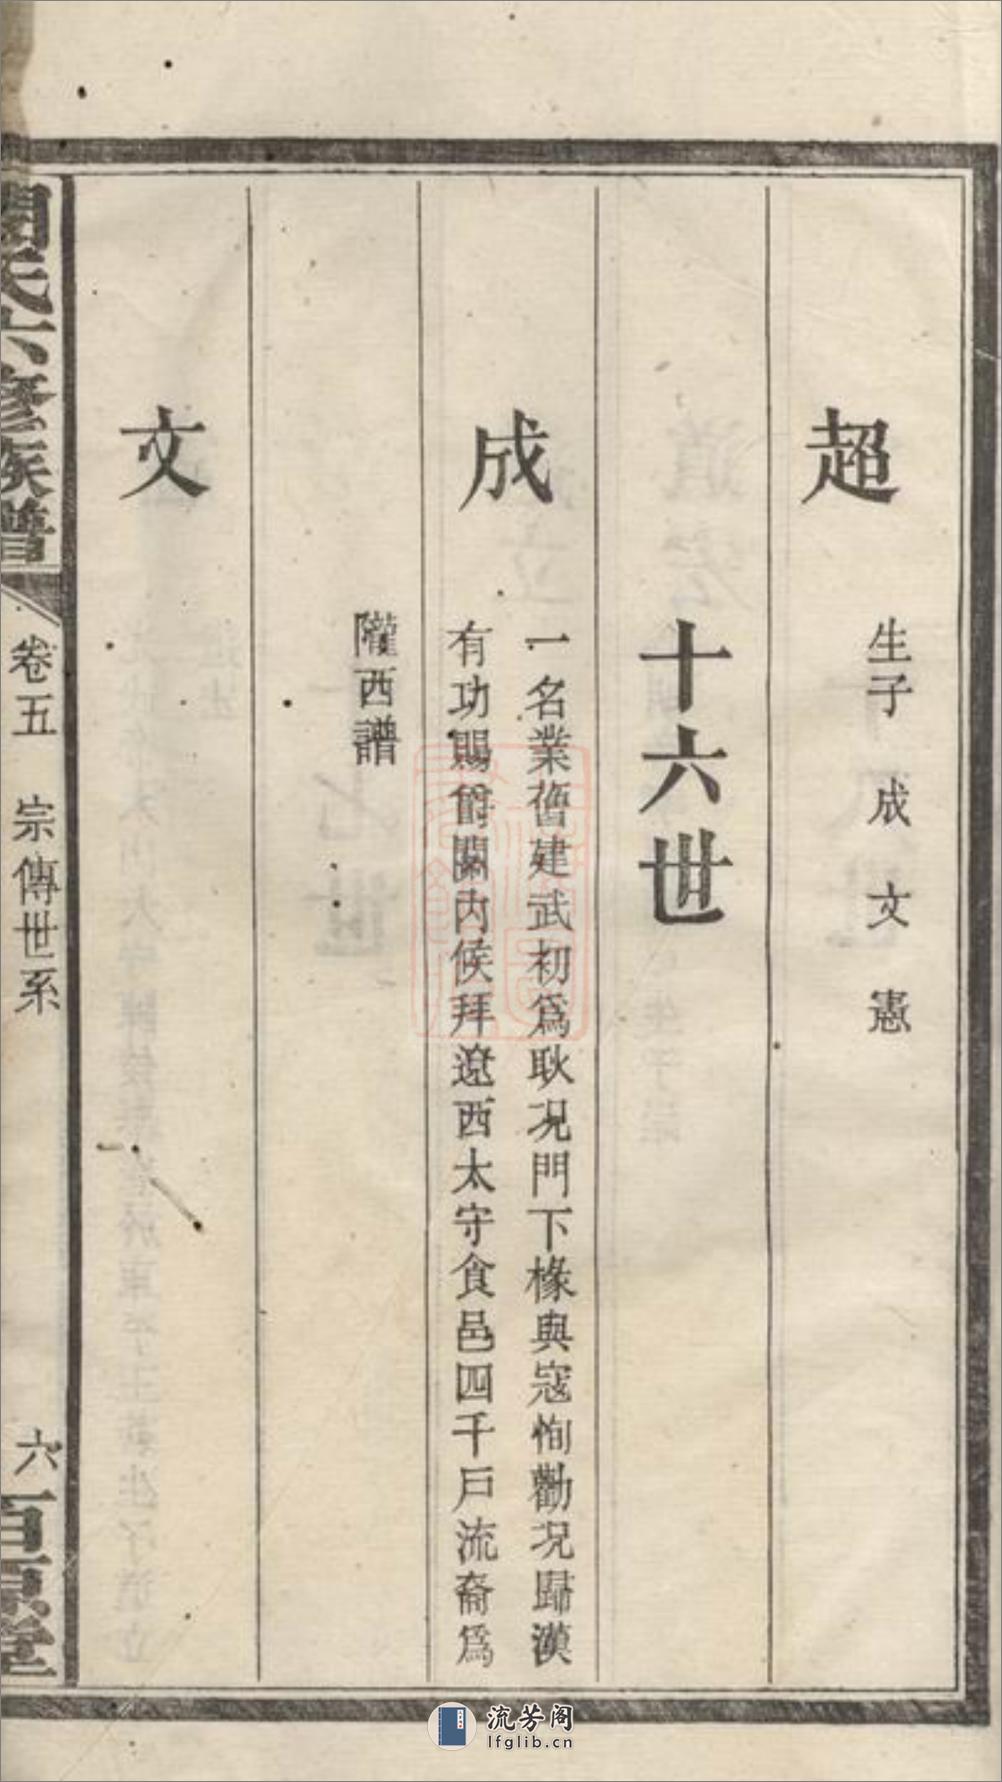 超
生子 成 文 憲
十六世
成
一名業舊建武初爲耿况門下椽與寇恂勸况歸漢
有功賜爵關內侯拜遼西太守食邑四千戶流裔爲
隴西譜
文
閔氏六修族譜
卷五 宗傳世系
六
流芳阁
lfglib.cn